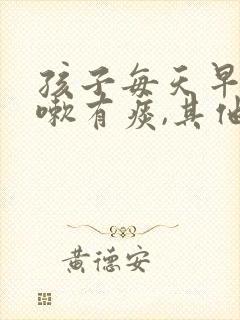 孩子每天早
嗽有痰,其他
黄德安